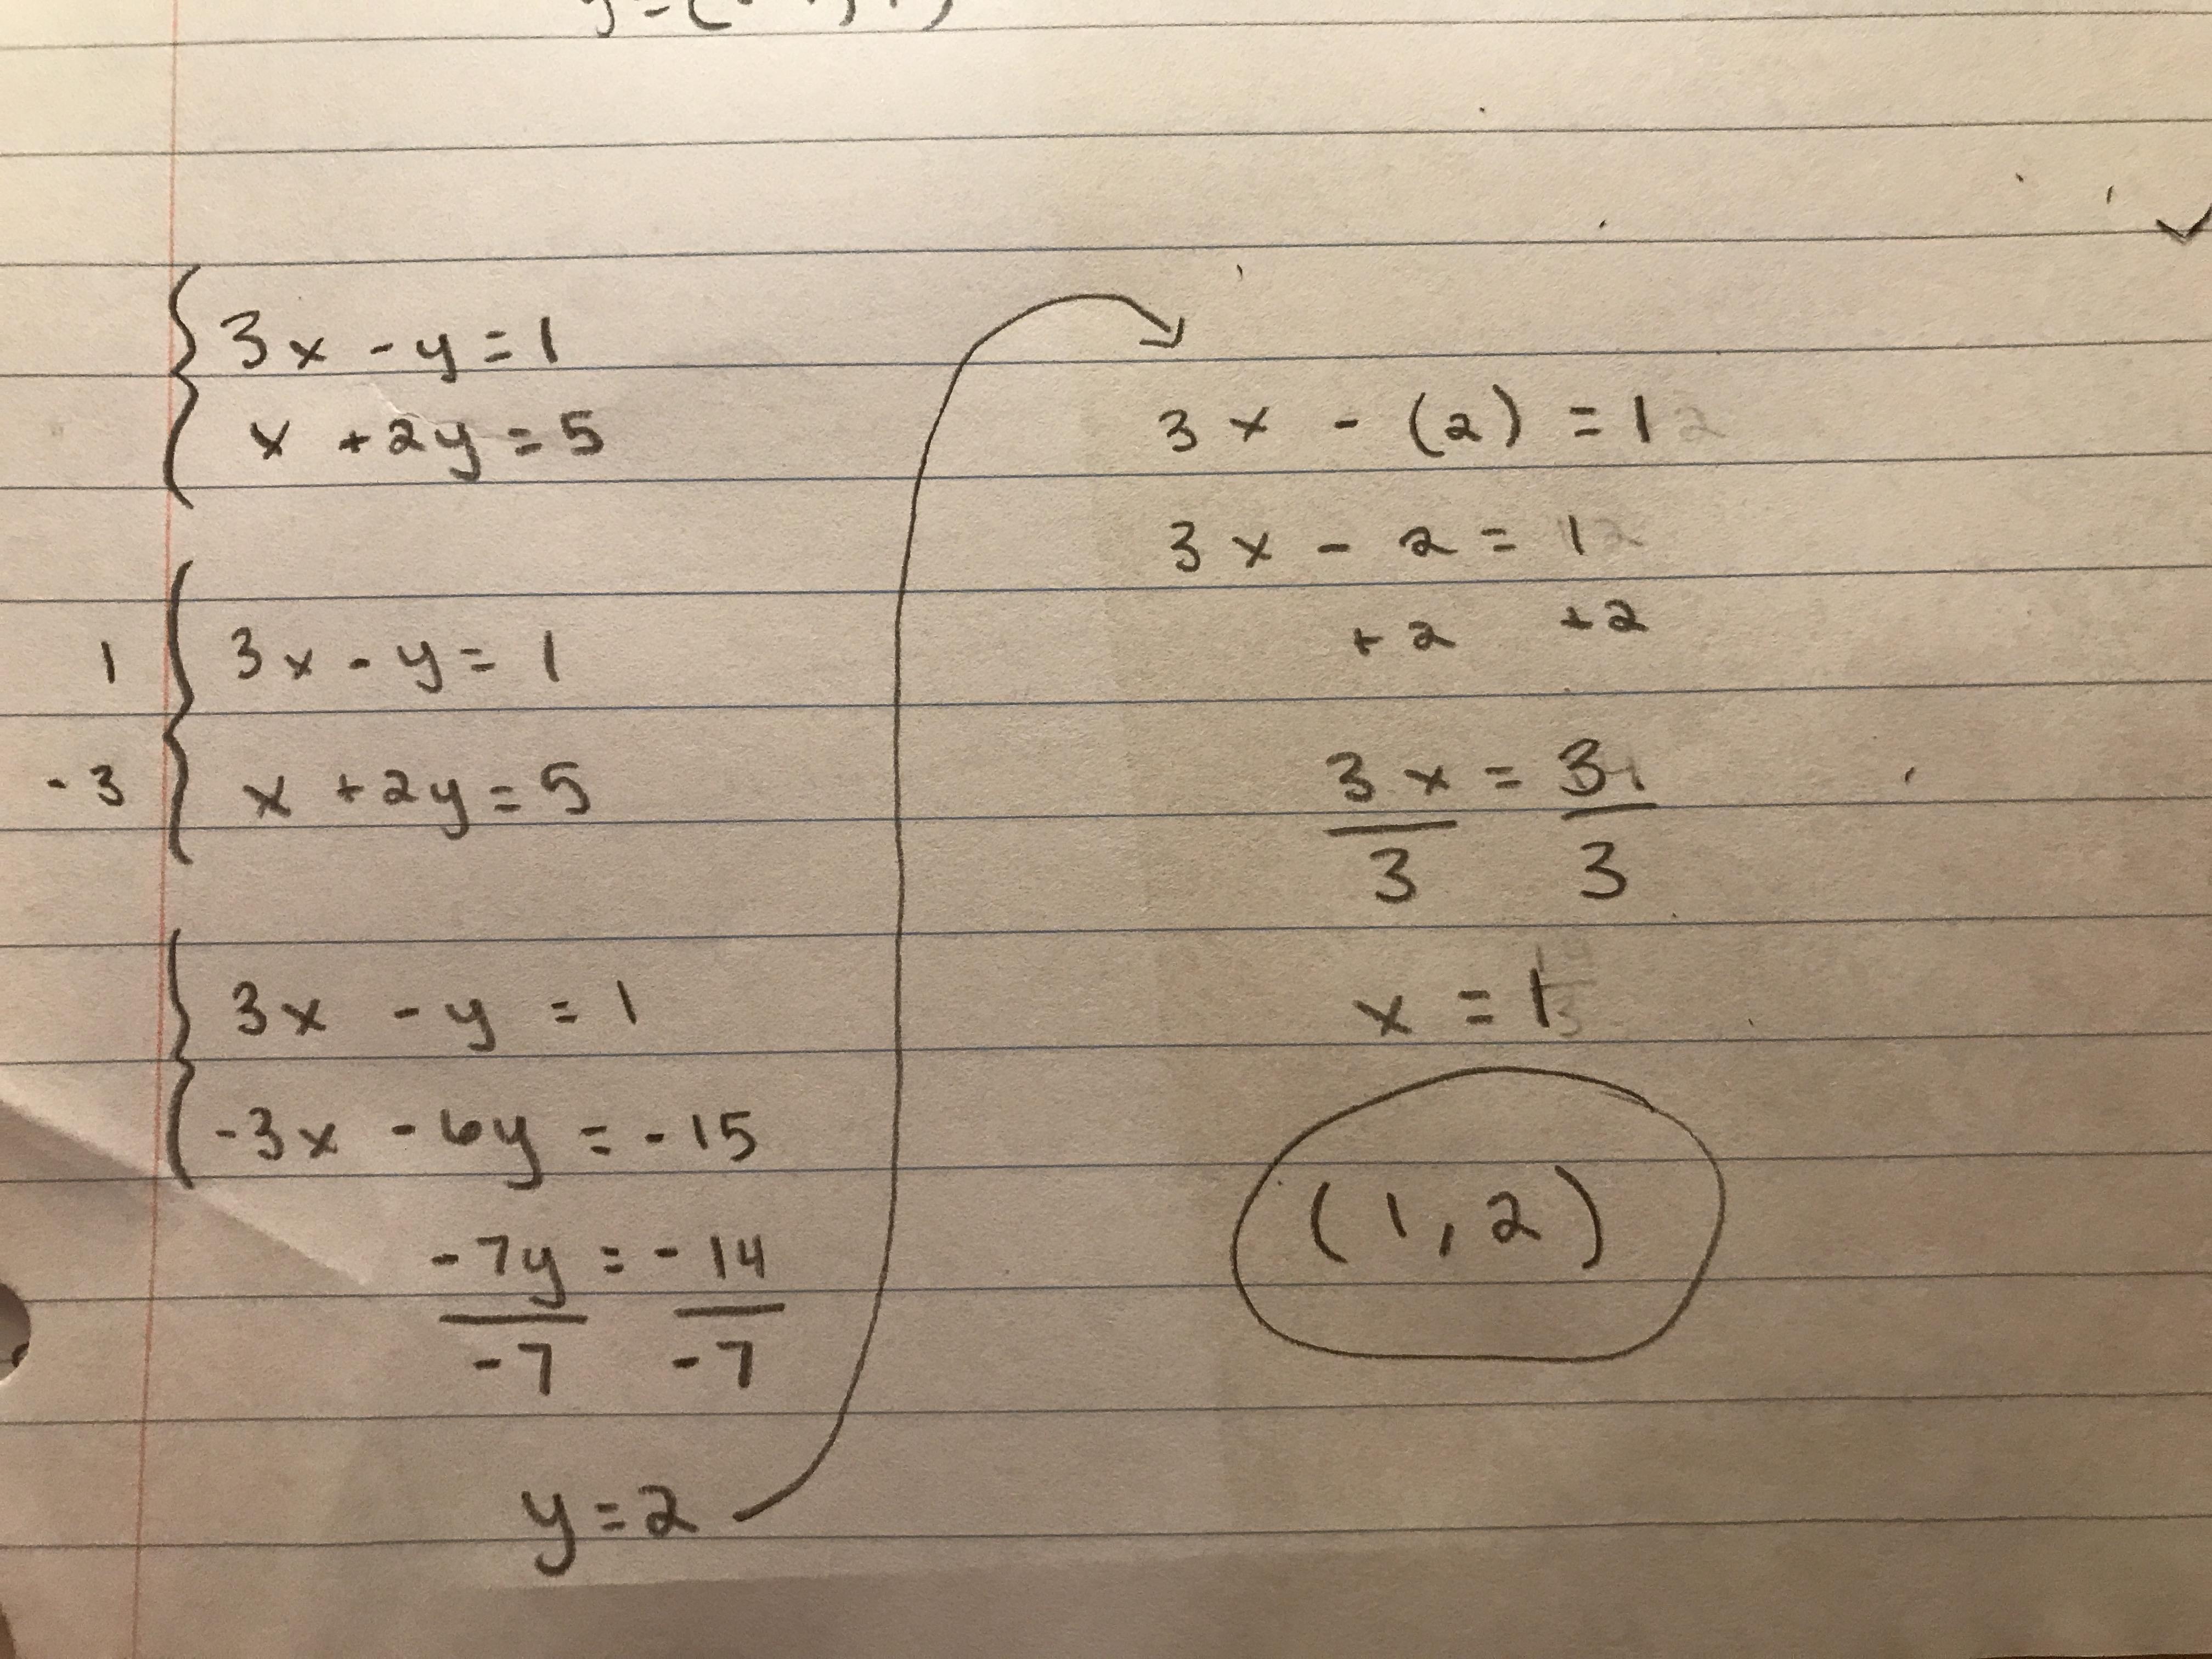 3x - y = 1
x + 2y = 5
1 3x - y = 1
-3 x + 2y = 5
3x - y = 1
-3x - 6y = -15
-7y = -14
-7 -7
y = 2
3x - (2) = 1
3x - 2 = 1
+2 +2
3x = 3
3 3
x = 1
(1, 2)